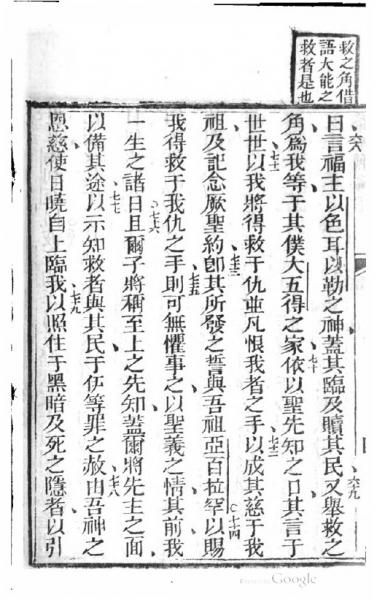 救之角借
語大能之
救者是也
六八曰言福主以色耳以勒之神蓋其臨及贖其民六九又舉救之
角爲我等于其僕大五得之家七十依以聖先知之口其言于
世世七一以我將得救于仇並凡恨我者之手七二以成其慈于我
祖及記念厥聖約七三卽其所發之誓與吾祖亞百拉罕七四以賜
我得救于我仇之手七五則可無懼事之以聖義之情其前我
一生之諸日七六且爾子將稱至上之先知蓋爾將先主之面
以備其途七七以示知救者與其民于伊等罪之赦七八由吾神之
恩慈使日曉自上臨我七九以照住于黑暗及死之隱者以引
Google